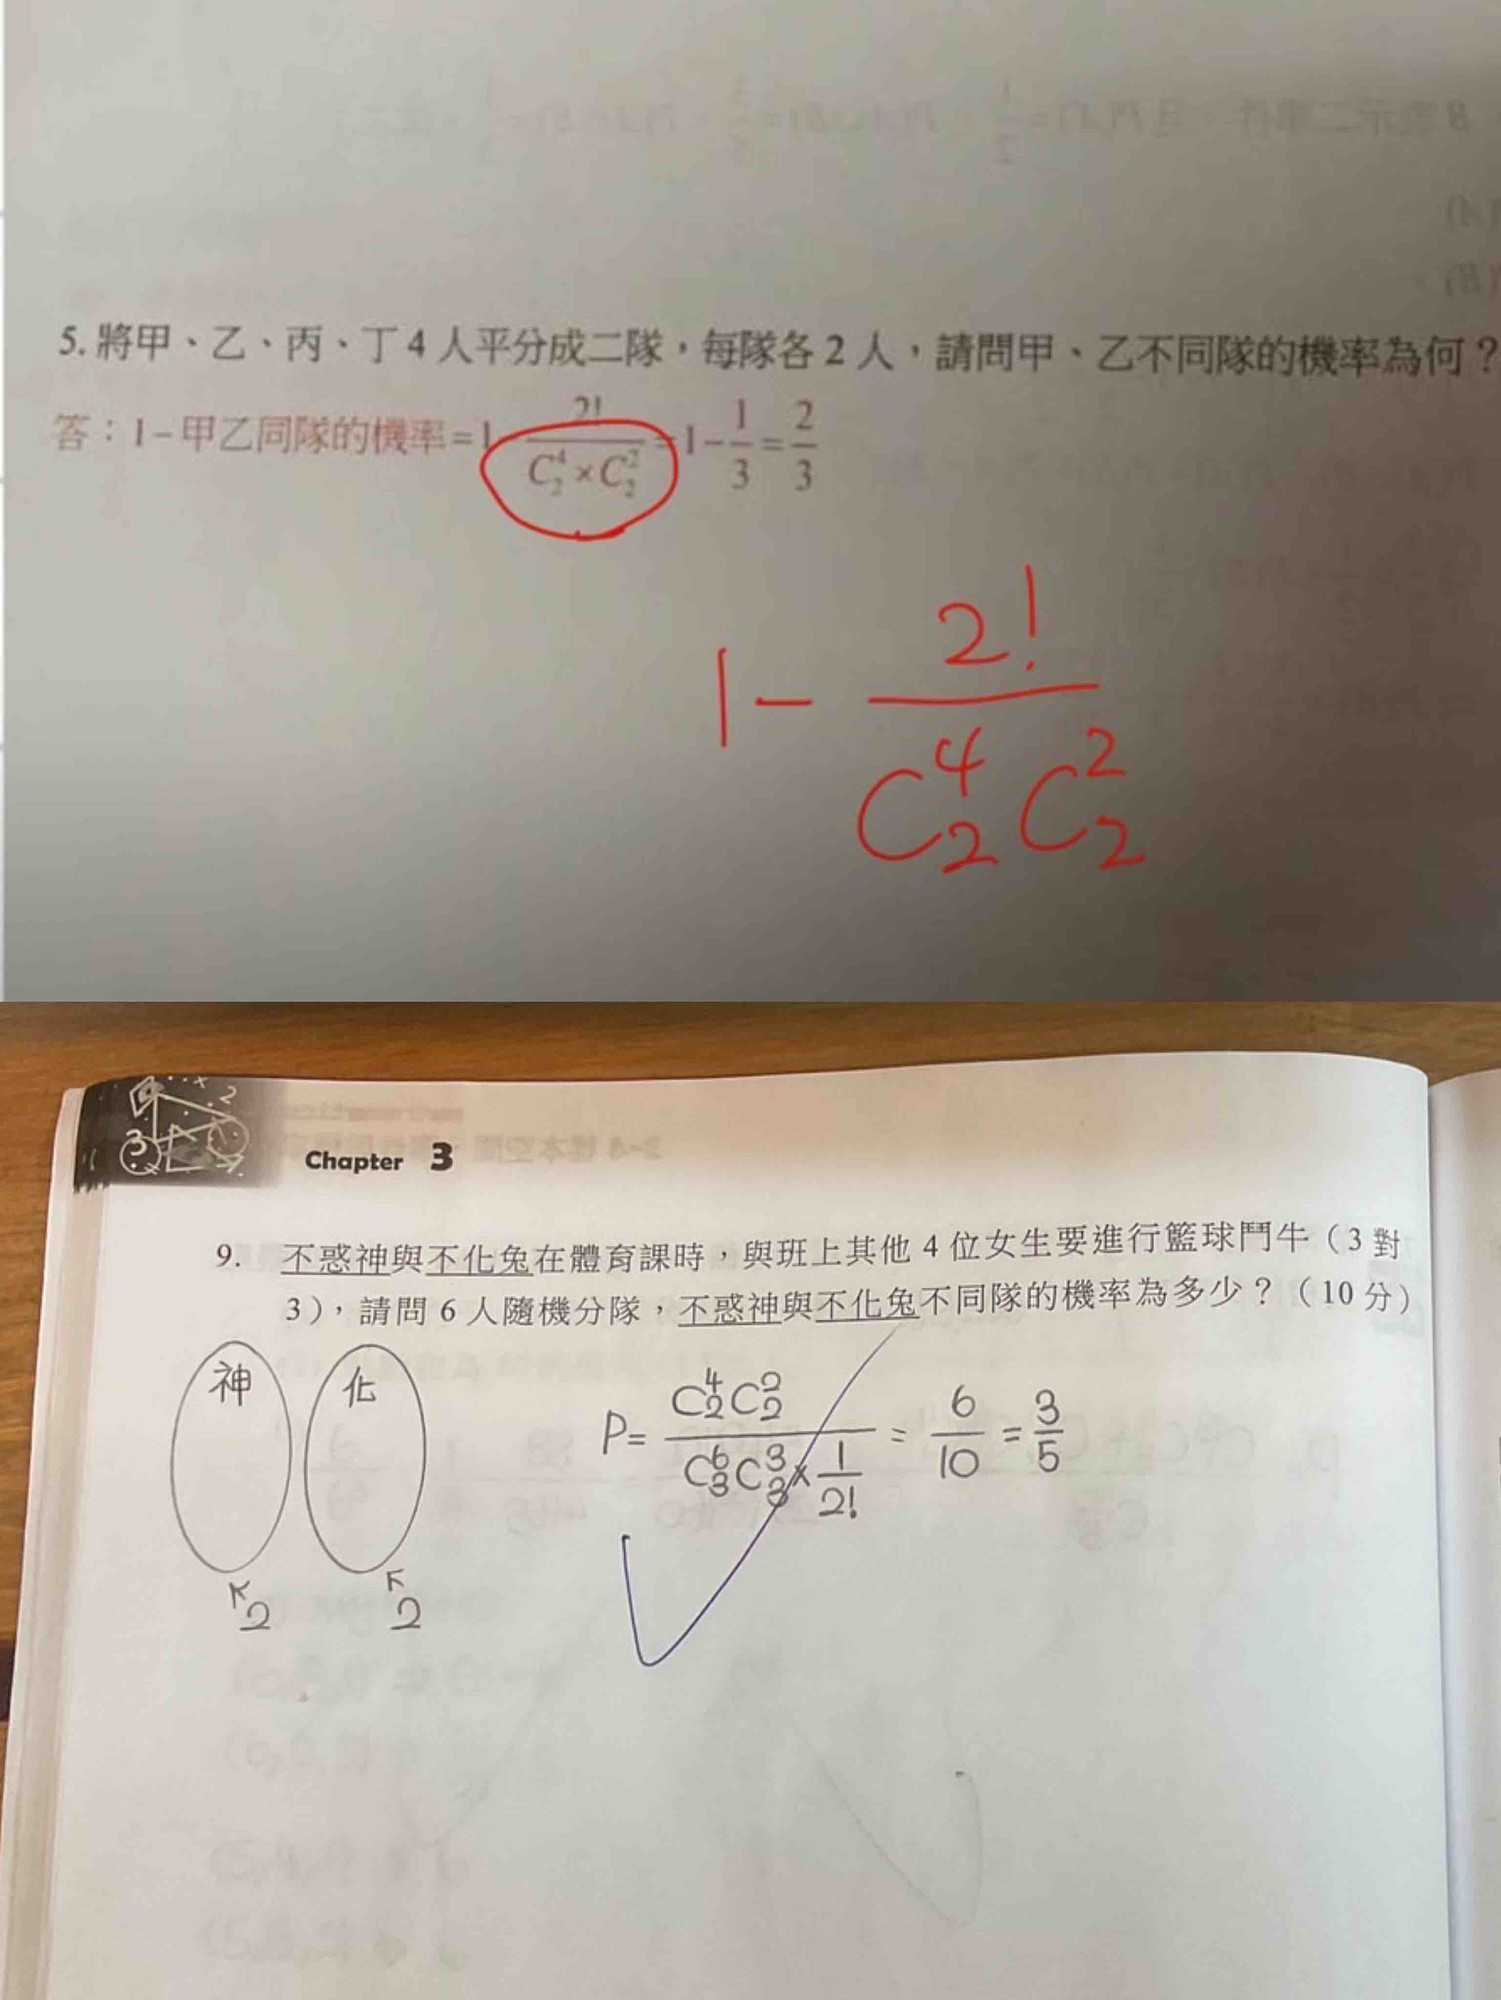 5. 將甲、乙、丙、丁 4 人平分成二隊，每隊各 2 人，請問甲、乙不同隊的機率為何？
答：1−甲乙同隊的機率=1−2!/(C⁴₂×C²₂)=1−1/3=2/3
1−2!/(C⁴₂C²₂)
Chapter 3
9. 不惑神與不化兔在體育課時，與班上其他 4 位女生要進行籃球鬥牛（3 對
3），請問 6 人隨機分隊，不惑神與不化兔不同隊的機率為多少？（10 分）
神 化
P= C⁴₂C²₂/(C⁶₃C³₃×1/2!) = 6/10 = 3/5
2 2